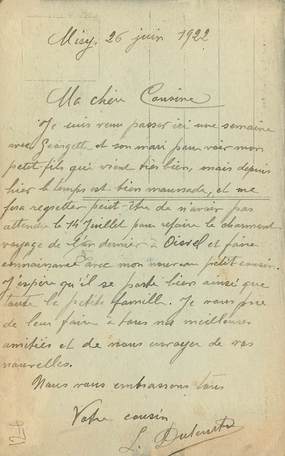 Misy, 26 juin 1922
Ma chère Cousine
Je suis venu passer ici une semaine
avec Georgette et son mari pour voir mon
petit fils qui vient très bien, mais depuis
hier le temps est bien maussade, et me
fera regretter peut-être de n'avoir pas
attendu le 14 Juillet pour refaire le charmant
voyage de l'an dernier à Oissel et faire
connaissance avec mon nouveau petit cousin.
J'espère qu'il se porte bien ainsi que
toute la petite famille. Je vous prie
de leur faire à tous nos meilleures
amitiés et de nous envoyer de vos
nouvelles.
Nous vous embrassons tous
Votre cousin
L.